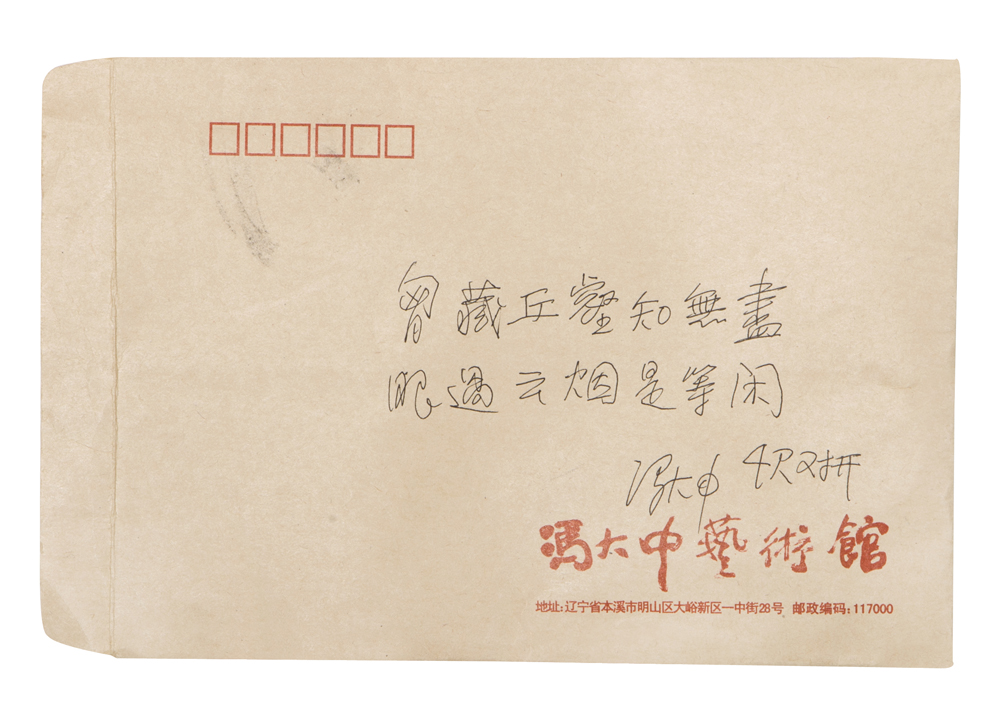 胷藏丘壑知無盡
眼過云烟是等闲
冯大中 4尺对开
冯大中藝術館
地址:辽宁省本溪市明山区大峪新区一中街28号 邮政编码:117000